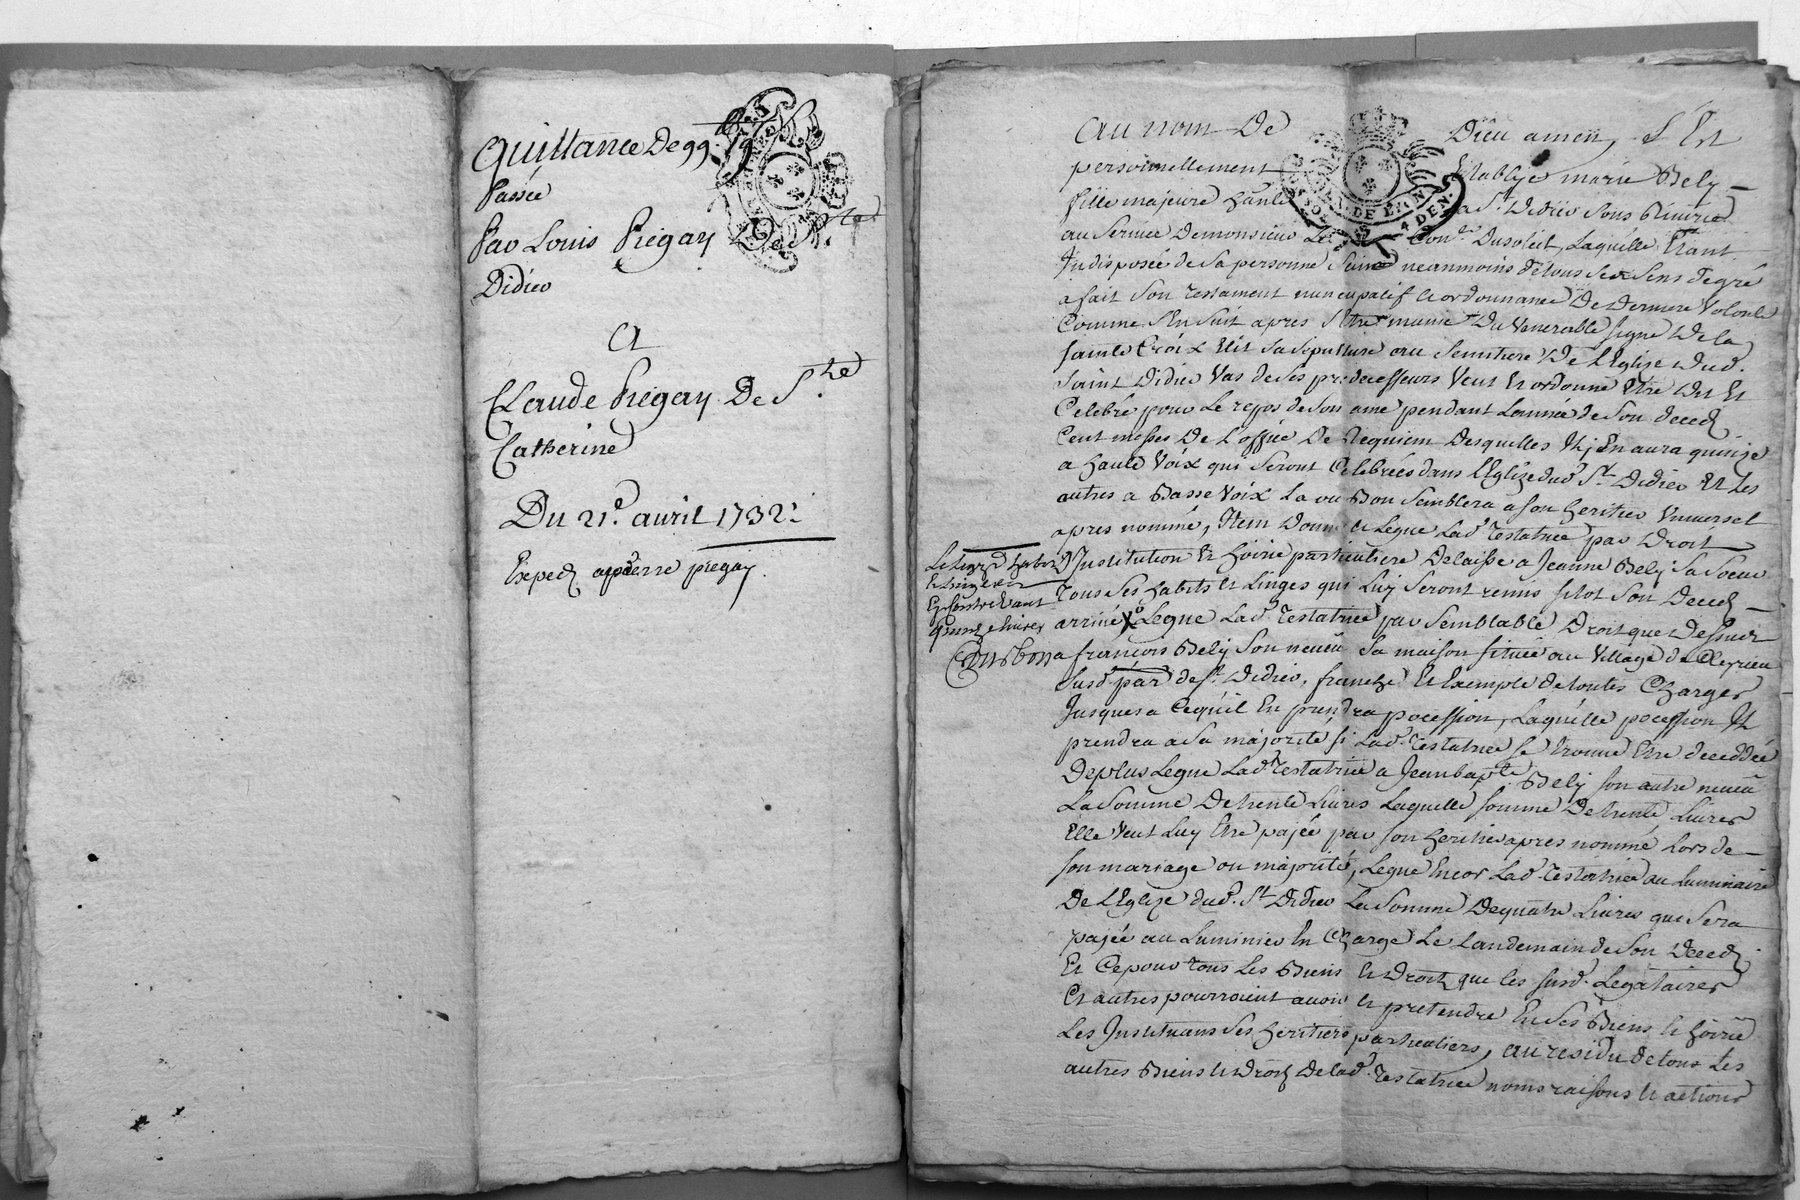 Quittance De 99ᵗᵗ 19ˢ
Passée
Par Louis Piegay De Sᵗ
Didier
A
Claude Piegay De Sᵗᵉ
Catherine
Du 21ᵉ. auril 1732.
Exped. a pierre piegay
au nom De Dieu amen, S Est
personnellement Establye marie Bely
fille majeure habite a Sᵗ Didier Sous Riuirie
au Seruice De monsieur Le Con.ᵉʳ Dusoleit, Laquelle Etant
Indisposée de Sa personne Saine neanmoins de tous Ses Sens de gré
a fait Son testament nuncupatif et ordonnance De Derniere Volonté
Comme S'En Suit apres S'Etre munie Du Venerable Signe De la
Sainte Croix Elit Sa Sepulture au Semitiere De L'Eglise Dud.
Saint Didier Vas de Ses predecesseurs Veut Et ordonne Etre Dit Et
Celebré pour Le repos de Son ame pendant Lannée de Son deced
Cent messes De L'office De Requiem Desquelles Il j En aura quinze
a haute Voix qui Seront Celebrées dans L'Eglize dud. Sᵗ Didier Et Les
autres a Basse Voix La ou Bon Semblera a Son heritier Vniuersel
apres nommé, Item Donne et Legue Lad. testatrice par Droit
Institution Et hoirie particuliere Delaisse a Jeanne Bely Sa Soeur
tous Ses habits et Linges qui Luy Seront remis sitot Son Deced
arriué Legue Lad. testatrice par Semblable Droit que Dessus
a françois Bely Son neueu Sa maison située au Village de
Susd. par. de Sᵗ Didier, franche Et Exempte de toutes Charges
Jusques a Cequil En prendra pocession, Laquelle pocession Il
prendra a Sa majorité si Lad. testatrice se trouue Etre deceddée
De plus Legue Lad. testatrice a Jean bapᵗᵉ Bely son autre neueu
La Somme De trente Liures Laquelle somme De trente Liures
Elle Veut Luy Etre pajée par son heritier apres nommé Lors de
son mariage ou majorité, Legue Encor Lad. testatrice au Luminaire
De L'Eglize dud. Sᵗ Didier La Somme De quatre Liures qui Sera
pajée au Luminier En Charge Le Landemain de Son Deced
Et Ce pour tous Les Biens Et Droits que les susd. Legataires
Et autres pourroient auoir Et pretendre En Ses Biens Et hoirie
Les Instituans Ses heritiers particuliers, au residu de tous Les
autres Biens Et Droits De lad. testatrice noms raisons Et actions